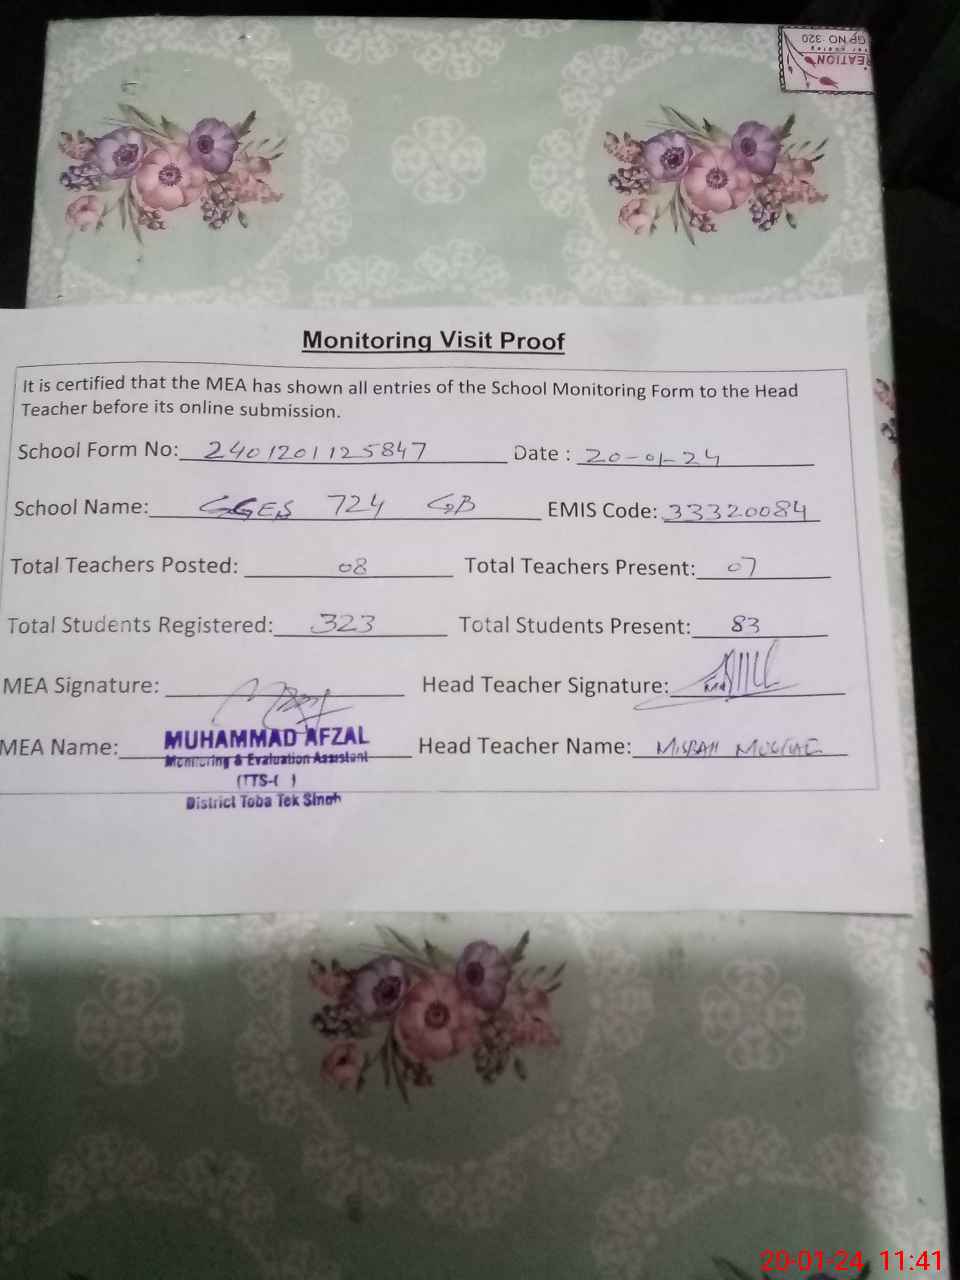 GP NO :320
Monitoring Visit Proof
It is certified that the MEA has shown all entries of the School Monitoring Form to the Head
Teacher before its online submission.
School Form No: 2401201125847 Date : 20-01-24
School Name: GGES 724 GB EMIS Code: 33320084
Total Teachers Posted: 08 Total Teachers Present: 07
Total Students Registered: 323 Total Students Present: 83
MEA Signature: Head Teacher Signature:
MEA Name: MUHAMMAD AFZAL Head Teacher Name: MISBAH
Monitoring & Evaluation Assistant
(TTS-( )
District Toba Tek Singh
20-01-24 11:41